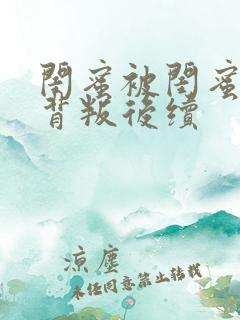 閨蜜被閨蜜
背叛後續
涼塵
未經同意禁止轉載